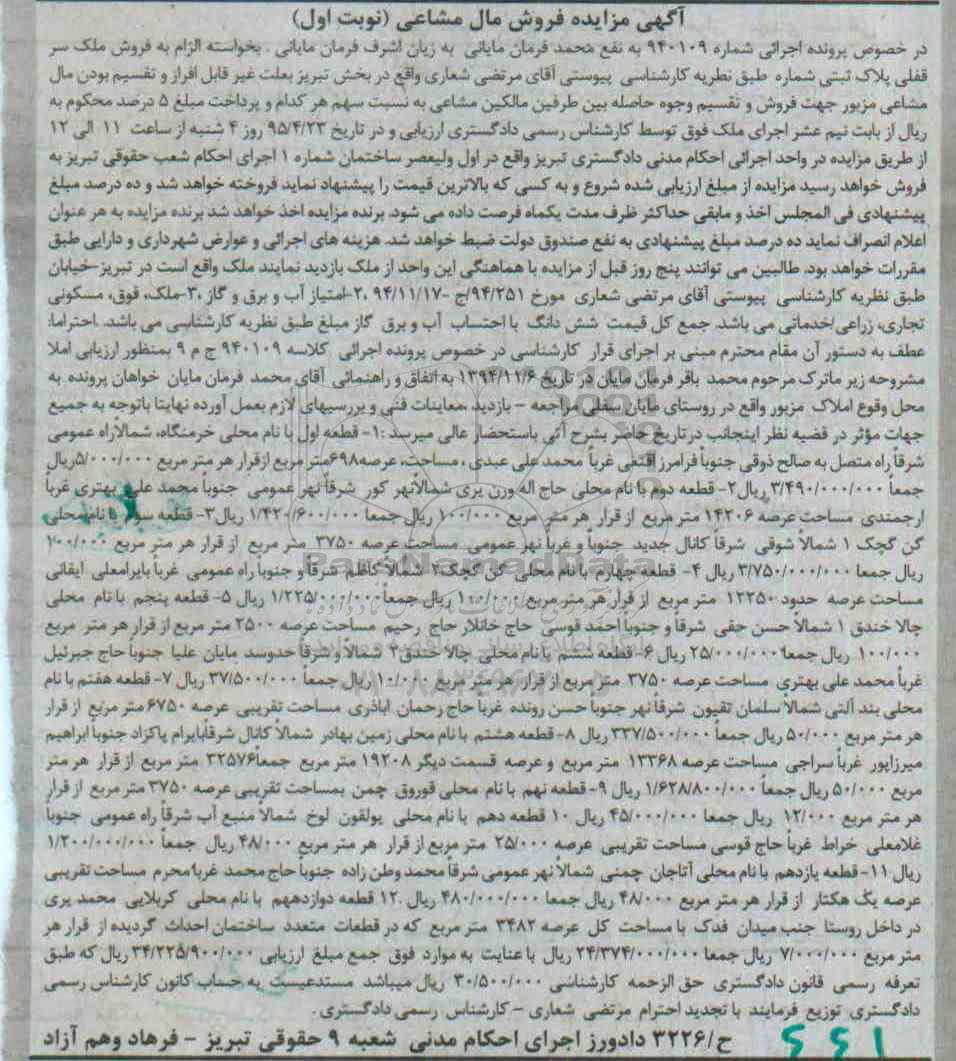 آگهی مزایده فروش مال مشاعی (نوبت اول)
در خصوص پرونده اجرائی شماره ۹۴۰۱۰۹ به نفع محمد فرمان مایانی به زیان اشرف فرمان مایانی . بخواسته الزام به فروش ملک سر
قفلی پلاک ثبتی شماره طبق نظریه کارشناسی پیوستی آقای مرتضی شعاری واقع در بخش تبریز بعلت غیر قابل افراز و تقسیم بودن مال
مشاعی مزبور جهت فروش و تقسیم وجوه حاصله بین طرفین مالکین مشاعی به نسبت سهم هر کدام و پرداخت مبلغ ۵ درصد محکوم به
ریال از بابت نیم عشر اجرای ملک فوق توسط کارشناس رسمی دادگستری ارزیابی و در تاریخ ۹۵/۴/۲۳ روز ۴ شنبه از ساعت ۱۱ الی ۱۲
از طریق مزایده در واحد اجرائی احکام مدنی دادگستری تبریز واقع در اول ولیعصر ساختمان شماره ۱ اجرای احکام شعب حقوقی تبریز به
فروش خواهد رسید مزایده از مبلغ ارزیابی شده شروع و به کسی که بالاترین قیمت را پیشنهاد نماید فروخته خواهد شد و ده درصد مبلغ
پیشنهادی فی المجلس اخذ و مابقی حداکثر ظرف مدت یکماه فرصت داده می شود. برنده مزایده اخذ خواهد شد برنده مزایده به هر عنوان
اعلام انصراف نماید ده درصد مبلغ پیشنهادی به نفع صندوق دولت ضبط خواهد شد. هزینه های اجرائی و عوارض شهرداری و دارایی طبق
مقررات خواهد بود. طالبین می توانند پنج روز قبل از مزایده با هماهنگی این واحد از ملک بازدید نمایند ملک واقع است در تبریز-خیابان
طبق نظریه کارشناسی پیوستی آقای مرتضی شعاری مورخ ۹۴/۲۵۱/ج -۹۴/۱۱/۱۷ .۲-امتیاز آب و برق و گاز .۳-ملک، فوق، مسکونی
تجاری، زراعی/خدماتی می باشد. جمع کل قیمت شش دانگ با احتساب آب و برق گاز مبلغ طبق نظریه کارشناسی می باشد. احتراما:
عطف به دستور آن مقام محترم مبنی بر اجرای قرار کارشناسی در خصوص پرونده اجرائی کلاسه ۹۴۰۱۰۹ ج م ۹ بمنظور ارزیابی املا
مشروحه زیر ماترک مرحوم محمد باقر فرمان مایان در تاریخ ۱۳۹۴/۱۱/۶ به اتفاق و راهنمائی آقای محمد فرمان مایان خواهان پرونده به
محل وقوع املاک مزبور واقع در روستای مایان سفلی مراجعه – بازدید ،معاینات فنی و بررسیهای لازم بعمل آورده نهایتا باتوجه به جمیع
جهات مؤثر در قضیه نظر اینجانب درتاریخ حاضر بشرح آتی باستحضار عالی میرسد :۱- قطعه اول با نام محلی خرمنگاه، شمالاً راه عمومی
شرقاً راه متصل به صالح ذوقی جنوباً فرامرز غرباً محمد علی عبدی ، مساحت، عرصه۶۹۸متر مربع ازقرار هر متر مربع ۵/۰۰۰/۰۰۰ریال
جمعاً ۳/۴۹۰/۰۰۰/۰۰۰ریال۲- قطعه دوم با نام محلی حاج اله ورن یری شمالاًنهر کور شرقاً نهر عمومی جنوباً محمد علی بهتری غرباً
ارجمندی مساحت عرصه ۱۴۲۰۶ متر مربع از قرار هر متر مربع ۱۰۰/۰۰۰ ریال جمعا ۱/۴۲۰/۶۰۰/۰۰۰ ریال۳- قطعه سوم با نام محلی
گن گچک ۱ شمالاً شوقی شرقاً کانال جدید جنوباً و غرباً نهر عمومی مساحت عرصه ۳۷۵۰ متر مربع از قرار هر متر مربع ۱۰۰/۰۰۰
ریال جمعا ۳/۷۵۰/۰۰۰/۰۰۰ ریال ۴- قطعه چهارم با نام محلی گن گچک۲ شمالاً کاظم شرقاً و جنوباً راه عمومی غرباً بایرامعلی ایقانی
مساحت عرصه حدود ۱۲۲۵۰ متر مربع از قرار هر متر مربع ۱۰۰/۰۰۰ ریال جمعاً ۱/۲۲۵/۰۰۰/۰۰۰ ریال ۵- قطعه پنجم با نام محلی
چالا خندق ۱ شمالاً حسن حقی شرقاً و جنوباً احمد قوسی حاج خانلار حاج رحیم مساحت عرصه ۲۵۰۰ متر مربع از قرار هر متر مربع
۱۰۰/۰۰۰ ریال جمعاً ۲۵/۰۰۰/۰۰۰ ریال ۶- قطعه ششم با نام محلی چالا خندق۲ شمالاً و شرقاً حدوسد مایان علیا جنوباً حاج جبرئیل
غرباً محمد علی بهتری مساحت عرصه ۳۷۵۰ متر مربع از قرار هر متر مربع ۱۰/۰۰۰ ریال جمعاً ۳۷/۵۰۰/۰۰۰ ریال ۷- قطعه هفتم با نام
محلی بند آلتی شمالاً سلمان تقیون شرقاً نهر جنوباً حسن رونده غرباً حاج رحمان اباذری مساحت تقریبی عرصه ۶۷۵۰ متر مربع از قرار
هر متر مربع ۵۰/۰۰۰ ریال جمعاً ۳۳۷/۵۰۰/۰۰۰ ریال ۸- قطعه هشتم با نام محلی زمین بهادر شمالاً کانال شرقاًبایرام پاکزاد جنوباً ابراهیم
میرزاپور غرباً سراجی مساحت عرصه ۱۳۳۶۸ متر مربع و عرصه قسمت دیگر ۱۹۲۰۸ متر مربع جمعاً۳۲۵۷۶ متر مربع از قرار هر متر
مربع ۵۰/۰۰۰ ریال جمعاً ۱/۶۲۸/۸۰۰/۰۰۰ ریال ۹- قطعه نهم با نام محلی قوروق چمن بمساحت تقریبی عرصه ۳۷۵۰ متر مربع از قرار
هر متر مربع ۱۲/۰۰۰ ریال جمعا ۴۵/۰۰۰/۰۰۰ ریال ۱۰ قطعه دهم با نام محلی یولقون لوخ شمالاً منبع آب شرقاً راه عمومی جنوباً
غلامعلی خراط غرباً حاج قوسی مساحت تقریبی عرصه ۲۵/۰۰۰ متر مربع از قرار هر متر مربع ۴۸/۰۰۰ ریال جمعاً ۱/۲۰۰/۰۰۰/۰۰۰
ریال ۱۱- قطعه یازدهم با نام محلی آتاجان چمنی شمالاً نهر عمومی شرقاً محمد وطن زاده جنوباً حاج محمد غرباً محرم مساحت تقریبی
عرصه یک هکتار از قرار هر متر مربع ۴۸/۰۰۰ ریال جمعا ۴۸۰/۰۰۰/۰۰۰ ریال ۱۲. قطعه دوازدههم با نام محلی کربلایی محمد یری
در داخل روستا جنب میدان فدک با مساحت کل عرصه ۳۴۸۲ متر مربع که در قطعات متعدد ساختمان احداث گردیده از قرار هر
متر مربع ۷/۰۰۰/۰۰۰ ریال جمعا ۲۴/۳۷۴/۰۰۰/۰۰۰ ریال با عنایت به موارد فوق جمع مبلغ ارزیابی ۳۴/۲۲۵/۹۰۰/۰۰۰ ریال که طبق
تعرفه رسمی قانون دادگستری حق الزحمه کارشناسی ۳۰/۵۰۰/۰۰۰ ریال میباشد مستدعیست به حساب کانون کارشناس رسمی
دادگستری توزیع فرمایند با تجدید احترام مرتضی شعاری – کارشناس رسمی دادگستری .
ح/۳۲۲۶ دادورز اجرای احکام مدنی شعبه ۹ حقوقی تبریز - فرهاد وهم آزاد